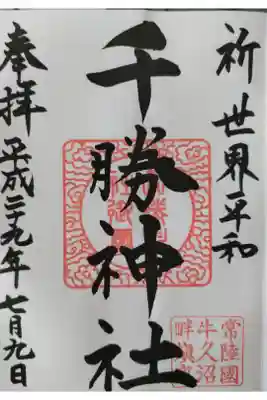 祈 世界平和
千勝神社
奉拝 平成二十九年 七月九日
常陸國
牛久沼